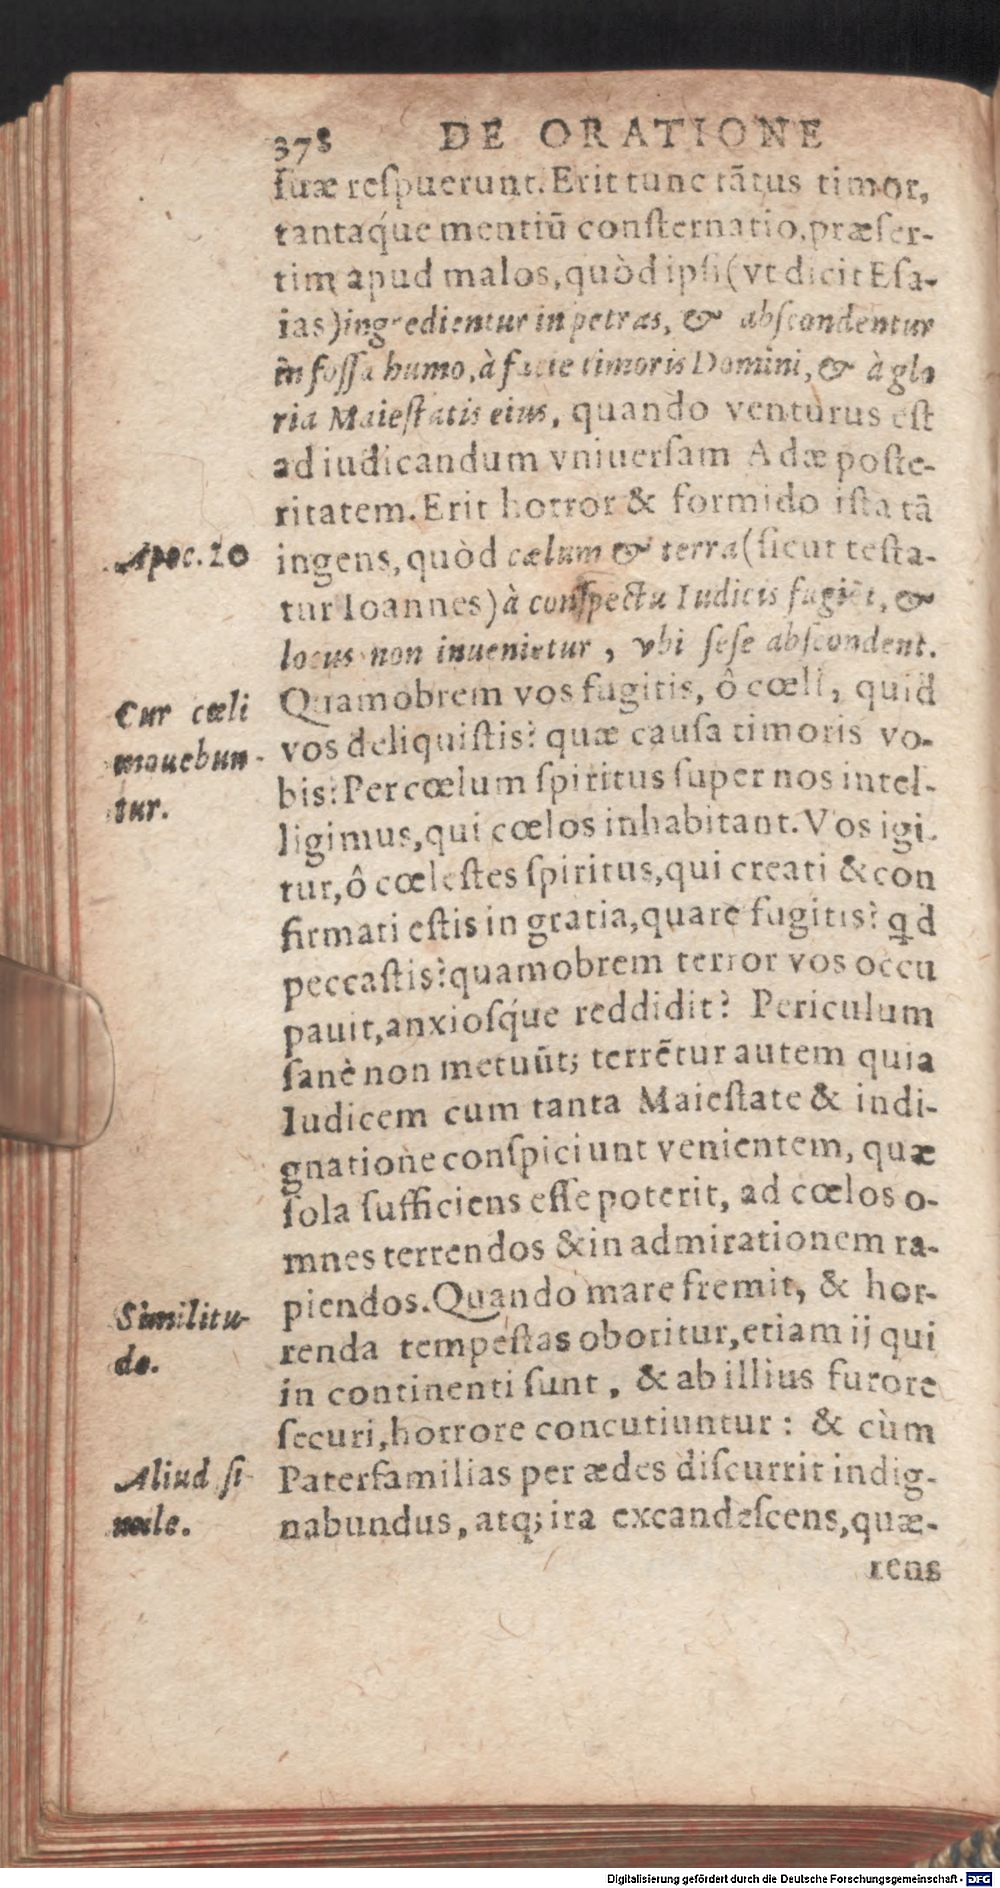 378 DE ORATIONE
ſuæ reſpuerunt. Erit tunc tãtus timor,
tantaq́ue mentiũ conſternatio, præſer-
tim apud malos, quòd ipſi (vt dicit Eſa-
ias) ingredientur in petras, & abſcondentur
in foſſa humo, à facie timoris Domini, & à glo
ria Maieſtatis eius, quando venturus eſt
ad iudicandum vniuerſam Adæ poſte-
ritatem. Erit horror & formido iſta tã
Apoc. 20
ingens, quòd cælum & terra (ſicut teſta-
tur Ioannes) à conſpectu Iudicis fugiẽt, &
locus non inuenietur, vbi ſeſe abſcondent.
Cur cœli
mouebun-
tur.
Quamobrem vos fugitis, ô cœli, quid
vos deliquiſtis? quæ cauſa timoris vo-
bis? Per cœlum ſpiritus ſuper nos intel-
ligimus, qui cœlos inhabitant. Vos igi-
tur, ô cœleſtes ſpiritus, qui creati & con
firmati eſtis in gratia, quare fugitis? ꝗd
peccaſtis? quamobrem terror vos occu
pauit, anxioſq́ue reddidit? Periculum
ſanè non metuũt; terrẽtur autem quia
Iudicem cum tanta Maieſtate & indi-
gnatione conſpiciunt venientem, quæ
ſola ſufficiens eſſe poterit, ad cœlos o-
mnes terrendos & in admirationem ra-
Similitu-
do.
piendos. Quando mare fremit, & hor-
renda tempeſtas oboritur, etiam ij qui
in continenti ſunt, & ab illius furore
ſecuri, horrore concutiuntur: & cùm
Aliud ſi-
mile.
Paterfamilias per ædes diſcurrit indig-
nabundus, atq; ira excandeſcens, quæ-
rens
Digitalisierung gefördert durch die Deutsche Forschungsgemeinschaft - DFG